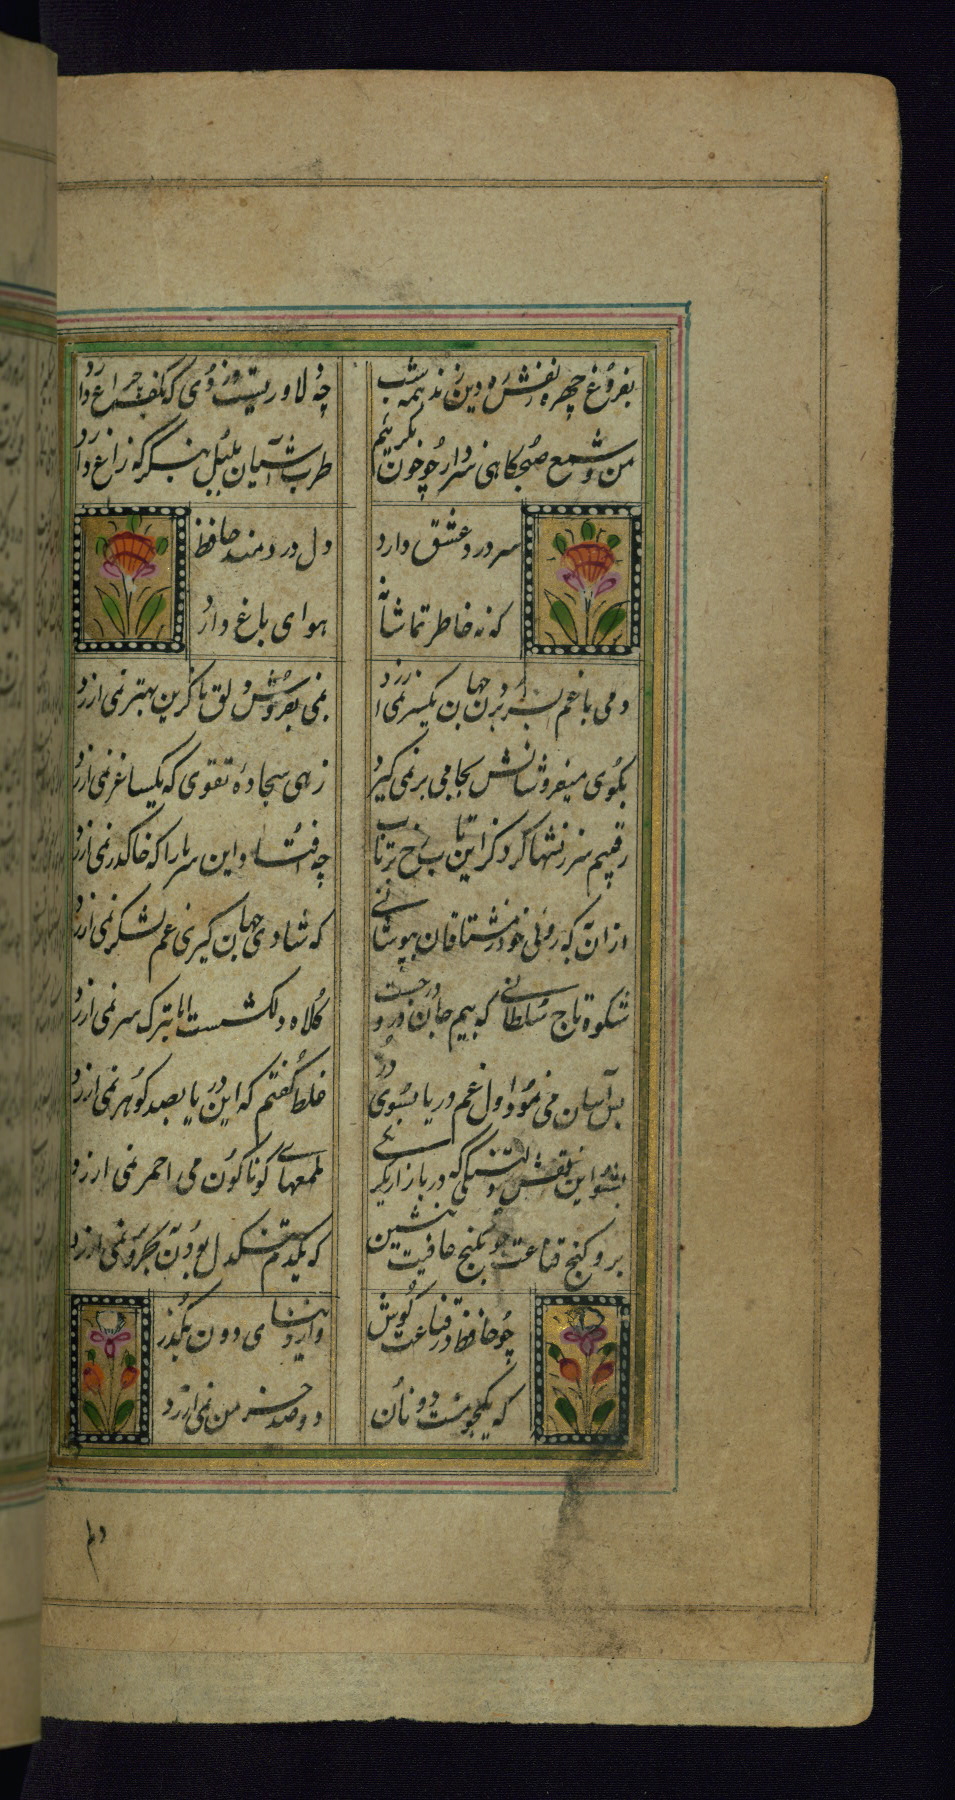 بفروغ چهره زلفش ره دین زند همه شب
چه دلاورست دزدی که بکف چراغ دارد
من و شمع صبحگاهی سزد ار چو خون بگرییم
طرب آشیان بلبل بنگر که زاغ دارد
سر درد عشق دارد
دل دردمند حافظ
که نه خاطر تماشا
نه هوای باغ دارد
دمی با غم بسر بردن جهان یکسر نمی ارزد
بمی بفروش دلق ما کزین بهتر نمی ارزد
بکوی میفروشانش بجامی بر نمی گیرد
زهی سجاده تقوی که یک ساغر نمی ارزد
رقیبم سرزنشها کرد کز این باب رخ برتاب
چه افتاد این سر ما را که خاک در نمی ارزد
ترا آن به که روی خود ز مشتاقان بپوشانی
که شادی جهان گیری غم لشکر نمی ارزد
شکوه تاج سلطانی که بیم جان درو درجست
کلاه دلکشست اما بترک سر نمی ارزد
بس آسان می نمود اول غم دریا ببوی در
غلط گفتم که این دریا بصد گوهر نمی ارزد
بشو این نقش دلتنگی که در بازار یکرنگی
ملمعهای گوناگون می احمر نمی ارزد
برو کنج قناعت جو بکنج عافیت بنشین
که یکدم تنگدل بودن ببحر و بر نمی ارزد
چو حافظ در قناعت کوش
و از دنیای دون بگذر
که یکجو منت دونان
دو صد من زر نمی ارزد
دلم